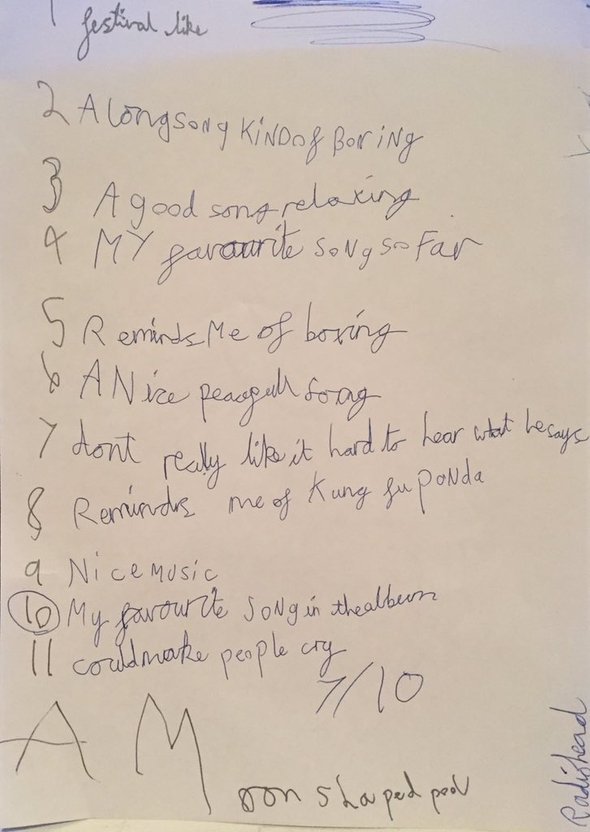 1 festival like
2 A long song kiND of BoriNg
3 A good song relaxing
4 MY favourite soNg so Far
5 Reminds Me of boxing
6 A Nice peacefull song
7 dont really like it hard to hear what he says
8 Reminds me of Kung fu PaNda
9 Nice Music
10 My favourite soNg in the album
11 could make people cry
7/10
A Moon shaped pool
Radiohead